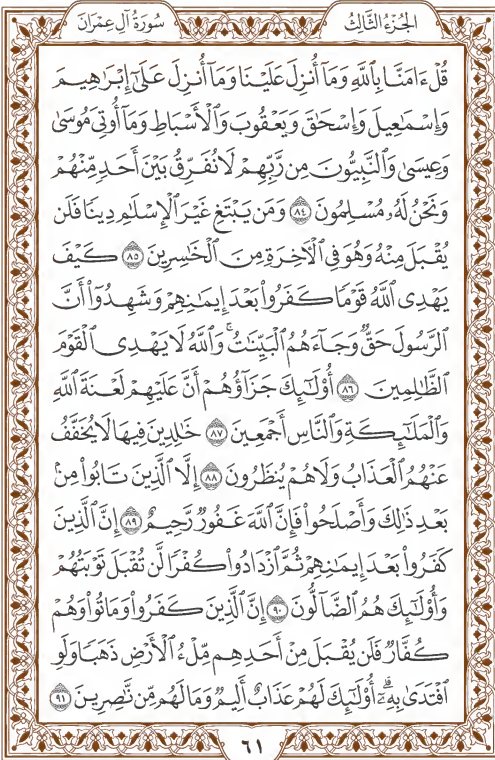 سُورَةُ آلِ عِمْرَانَ
الجُزءُ الثَّالِثُ
قُلْ ءَامَنَّا بِٱللَّهِ وَمَآ أُنزِلَ عَلَيْنَا وَمَآ أُنزِلَ عَلَىٰٓ إِبْرَٰهِيمَ
وَإِسْمَٰعِيلَ وَإِسْحَٰقَ وَيَعْقُوبَ وَٱلْأَسْبَاطِ وَمَآ أُوتِىَ مُوسَىٰ
وَعِيسَىٰ وَٱلنَّبِيُّونَ مِن رَّبِّهِمْ لَا نُفَرِّقُ بَيْنَ أَحَدٍ مِّنْهُمْ
وَنَحْنُ لَهُۥ مُسْلِمُونَ ٨٤ وَمَن يَبْتَغِ غَيْرَ ٱلْإِسْلَٰمِ دِينًا فَلَن
يُقْبَلَ مِنْهُ وَهُوَ فِى ٱلْءَاخِرَةِ مِنَ ٱلْخَٰسِرِينَ ٨٥ كَيْفَ
يَهْدِى ٱللَّهُ قَوْمًا كَفَرُوا۟ بَعْدَ إِيمَٰنِهِمْ وَشَهِدُوٓا۟ أَنَّ
ٱلرَّسُولَ حَقٌّ وَجَآءَهُمُ ٱلْبَيِّنَٰتُ ۚ وَٱللَّهُ لَا يَهْدِى ٱلْقَوْمَ
ٱلظَّٰلِمِينَ ٨٦ أُو۟لَٰٓئِكَ جَزَآؤُهُمْ أَنَّ عَلَيْهِمْ لَعْنَةَ ٱللَّهِ
وَٱلْمَلَٰٓئِكَةِ وَٱلنَّاسِ أَجْمَعِينَ ٨٧ خَٰلِدِينَ فِيهَا لَا يُخَفَّفُ
عَنْهُمُ ٱلْعَذَابُ وَلَا هُمْ يُنظَرُونَ ٨٨ إِلَّا ٱلَّذِينَ تَابُوا۟ مِنۢ
بَعْدِ ذَٰلِكَ وَأَصْلَحُوا۟ فَإِنَّ ٱللَّهَ غَفُورٌ رَّحِيمٌ ٨٩ إِنَّ ٱلَّذِينَ
كَفَرُوا۟ بَعْدَ إِيمَٰنِهِمْ ثُمَّ ٱزْدَادُوا۟ كُفْرًا لَّن تُقْبَلَ تَوْبَتُهُمْ
وَأُو۟لَٰٓئِكَ هُمُ ٱلضَّآلُّونَ ٩٠ إِنَّ ٱلَّذِينَ كَفَرُوا۟ وَمَاتُوا۟ وَهُمْ
كُفَّارٌ فَلَن يُقْبَلَ مِنْ أَحَدِهِم مِّلْءُ ٱلْأَرْضِ ذَهَبًا وَلَوِ
ٱفْتَدَىٰ بِهِۦٓ ۗ أُو۟لَٰٓئِكَ لَهُمْ عَذَابٌ أَلِيمٌ وَمَا لَهُم مِّن نَّٰصِرِينَ ٩١
٦١